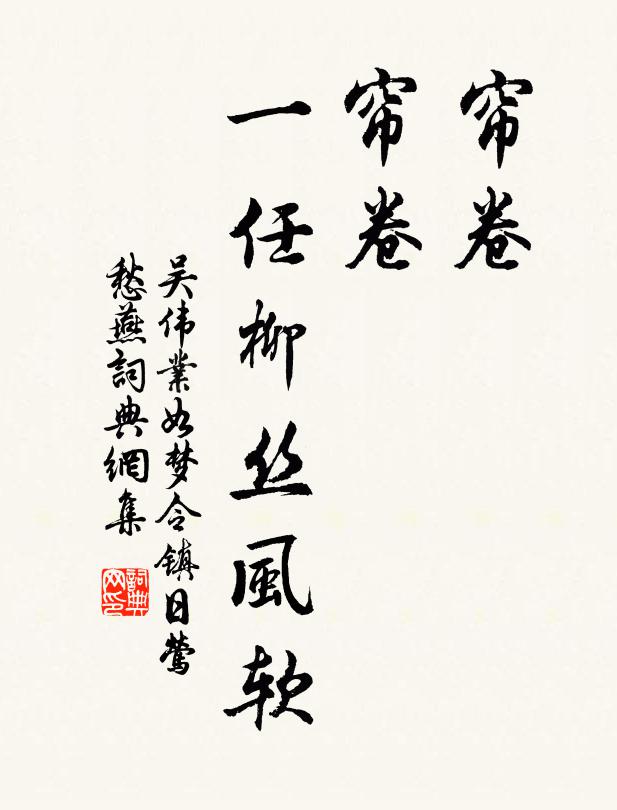 帘卷
帘卷
一任柳丝風软
吴伟業如梦令镇日莺
愁燕詞典網集
詞典
网印